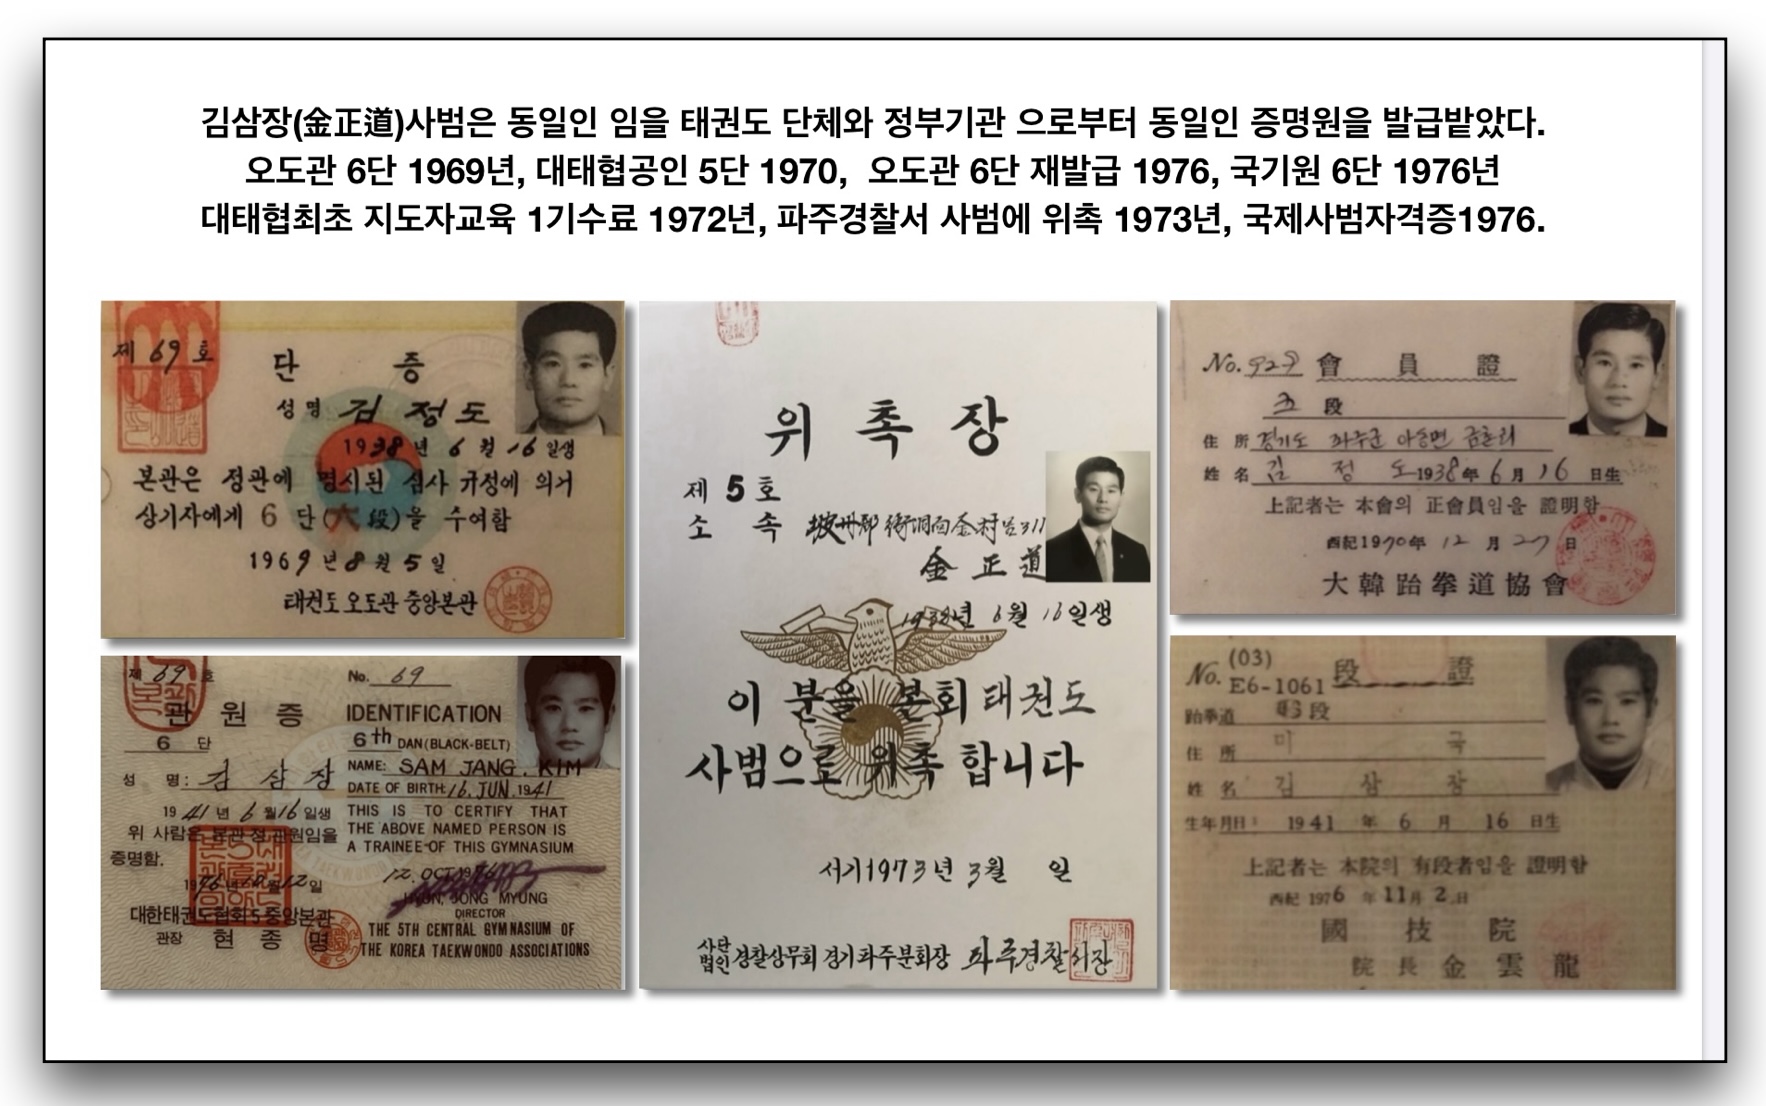 김삼장(金正道)사범은 동일인 임을 태권도 단체와 정부기관 으로부터 동일인 증명원을 발급밭았다.
오도관 6단 1969년, 대태협공인 5단 1970, 오도관 6단 재발급 1976, 국기원 6단 1976년
대태협최초 지도자교육 1기수료 1972년, 파주경찰서 사범에 위촉 1973년, 국제사범자격증1976.
제 69 호
단 증
성명 김 정 도
1938년 6월 16일생
본관은 정관에 명시된 심사 규정에 의거
상기자에게 6 단(六段)을 수여함
1969년 8월 5일
태권도 오도관 중앙본관
제 69 호
관 원 증
6 단
성 명: 김 삼 장
1941년 6월 16일생
위 사람은 본관 정 관원임을
증명함.
1976년 10월 12일
대한태권도협회 5 중앙본관
관장 현 종 명
No. 69
IDENTIFICATION
6th DAN (BLACK-BELT)
NAME: SAM JANG. KIM
DATE OF BIRTH: 16. JUN. 1941
THIS IS TO CERTIFY THAT
THE ABOVE NAMED PERSON IS
A TRAINEE OF THIS GYMNASIUM
12. OCT. 1976
HYUN, JONG MYUNG
DIRECTOR
THE 5TH CENTRAL GYMNASIUM OF
THE KOREA TAEKWONDO ASSOCIATIONS
위 촉 장
제 5 호
소 속 坡州郡 衙洞面 金村 311
金 正 道
1938년 6월 16일생
이 분을 본회 태권도
사범으로 위촉 합니다
서기1973년 3월 일
사단법인 경찰상무회 경기파주분회장 파주경찰서장
No. 929 會 員 證
五 段
住 所 경기도 파주군 아동면 금촌리
姓 名 김 정 도 1938年 6月 16日生
上記者는 本會의 正會員임을 證明함
西紀1970年 12月 27日
大韓跆拳道協會
No. (03) E6-1061 段 證
跆拳道 段
住 所 미 국
姓 名 김 삼 장
生年月日: 1941 年 6 月 16 日生
上記者는 本院의 有段者임을 證明함
西紀 1976 年 11月 2日
國 技 院
院 長 金 雲 龍